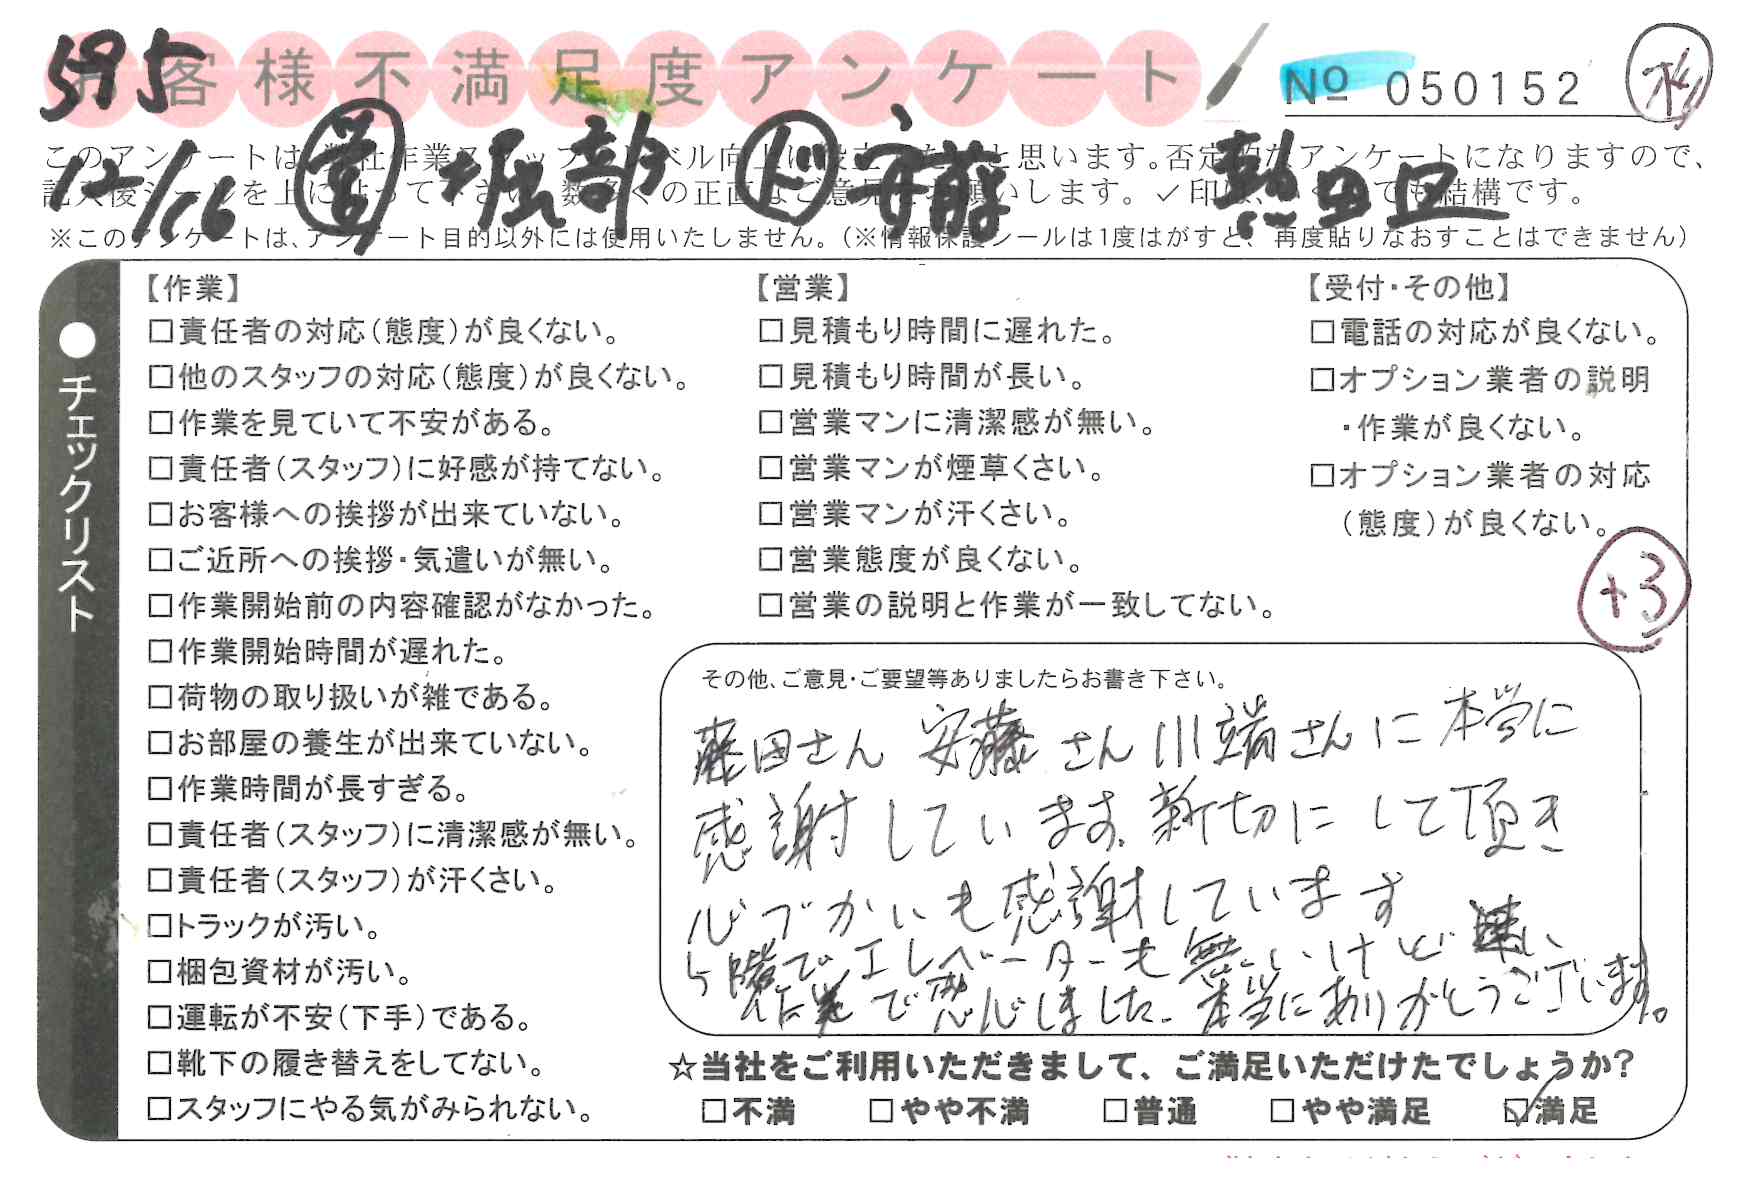 595
お客様不満足度アンケート
No 050152
12/16 営 堀部 ド 安藤 熱田区
このアンケートは、弊社作業スタッフのレベル向上に役立てたいと思います。否定的なアンケートになりますので、
記入後シールを上に貼って下さい。数多くの正直なご意見をお願いします。✓印は、いくつでも結構です。
※このアンケートは、アンケート目的以外には使用いたしません。(※情報保護シールは1度はがすと、再度貼りなおすことはできません)
●チェックリスト
【作業】
□責任者の対応(態度)が良くない。
□他のスタッフの対応(態度)が良くない。
□作業を見ていて不安がある。
□責任者(スタッフ)に好感が持てない。
□お客様への挨拶が出来ていない。
□ご近所への挨拶・気遣いが無い。
□作業開始前の内容確認がなかった。
□作業開始時間が遅れた。
□荷物の取り扱いが雑である。
□お部屋の養生が出来ていない。
□作業時間が長すぎる。
□責任者(スタッフ)に清潔感が無い。
□責任者(スタッフ)が汗くさい。
□トラックが汚い。
□梱包資材が汚い。
□運転が不安(下手)である。
□靴下の履き替えをしてない。
□スタッフにやる気がみられない。
【営業】
□見積もり時間に遅れた。
□見積もり時間が長い。
□営業マンに清潔感が無い。
□営業マンが煙草くさい。
□営業マンが汗くさい。
□営業態度が良くない。
□営業の説明と作業が一致してない。
【受付・その他】
□電話の対応が良くない。
□オプション業者の説明
・作業が良くない。
□オプション業者の対応
(態度)が良くない。
+3
その他、ご意見・ご要望等ありましたらお書き下さい。
藤田さん 安藤さん 川端さんに本当に
感謝しています。新切にして頂き
心づかいも感謝しています
5階でエレベーターも無いけど速い
作業で感心しました。本当にありがとうございます。
☆当社をご利用いただきまして、ご満足いただけたでしょうか?
□不満 □やや不満 □普通 □やや満足 ☑満足